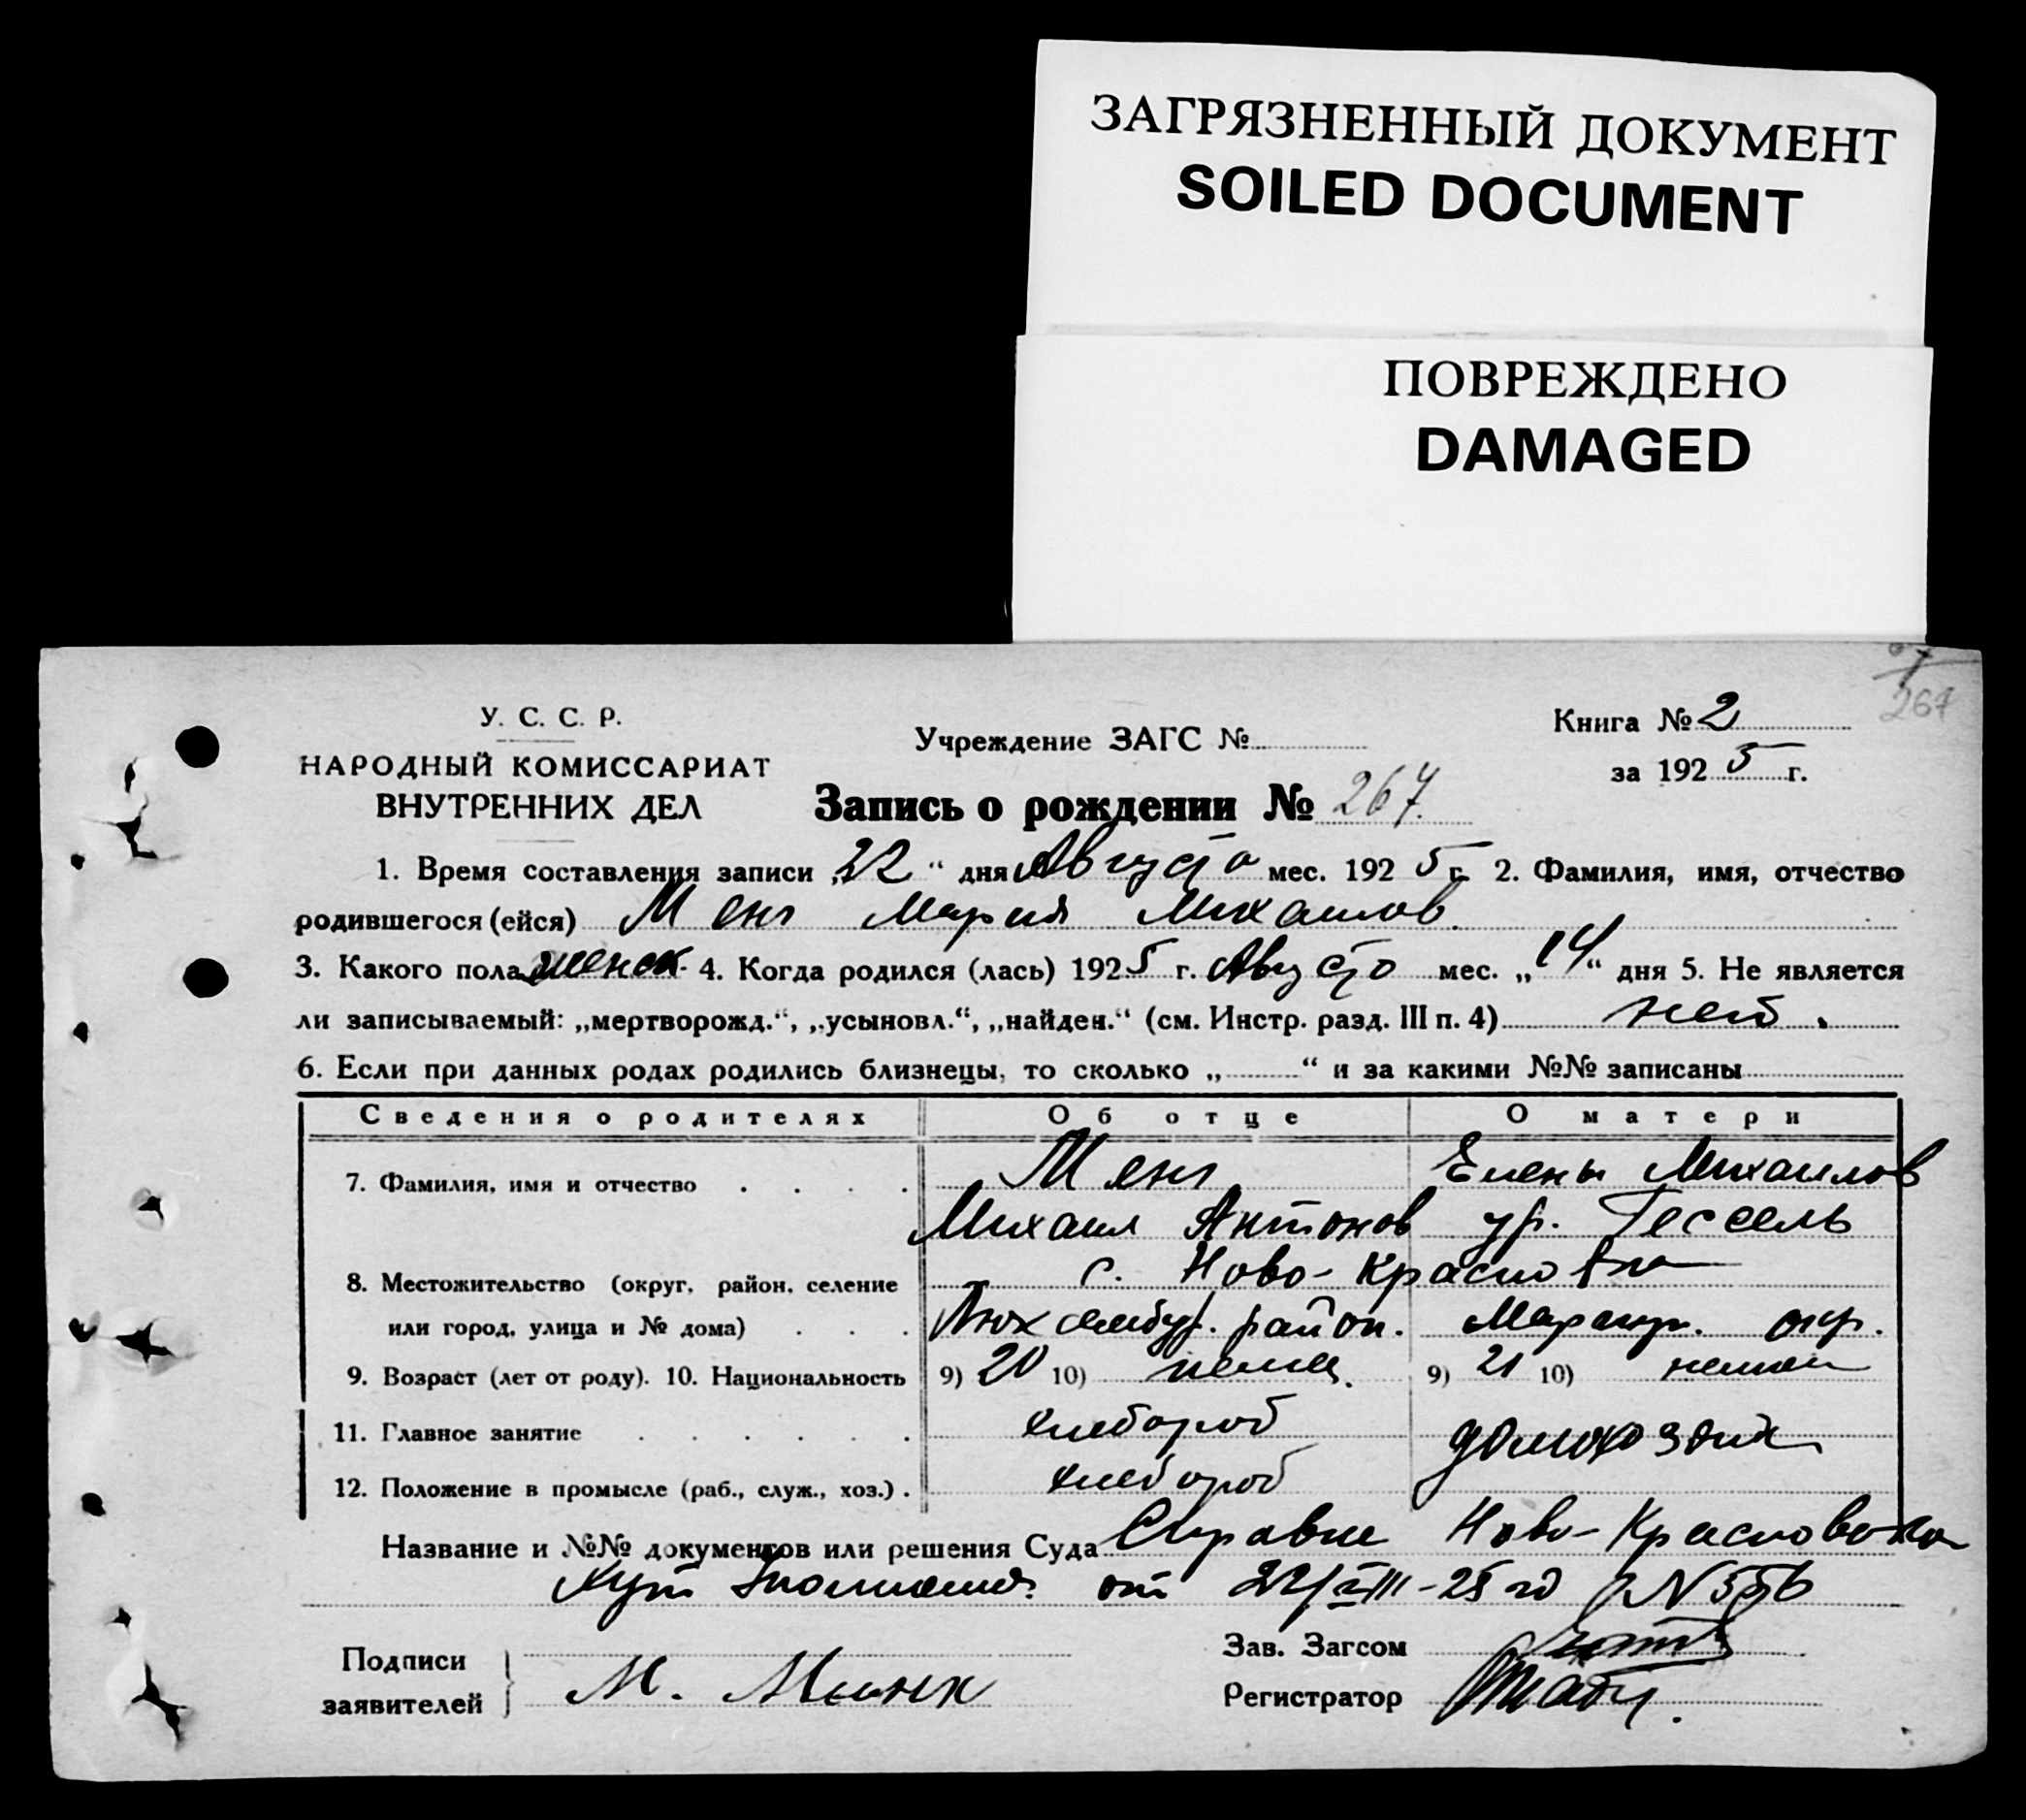 ЗАГРЯЗНЕННЫЙ ДОКУМЕНТ
SOILED DOCUMENT
ПОВРЕЖДЕНО
DAMAGED
267
У. С. С. Р.
НАРОДНЫЙ КОМИССАРИАТ
ВНУТРЕННИХ ДЕЛ
Учреждение ЗАГС №
Книга № 2
за 1925 г.
Запись о рождении № 267.
1. Время составления записи „22“ дня Августа мес. 1925 г. 2. Фамилия, имя, отчество
родившегося (ейся) Менг Мария Михаилов.
3. Какого пола женск. 4. Когда родился (лась) 1925 г. Августа мес. „14“ дня 5. Не является
ли записываемый: „мертворожд.“, „усыновл.“, „найден.“ (см. Инстр. разд. III п. 4) нет.
6. Если при данных родах родились близнецы, то сколько „ “ и за какими №№ записаны
Сведения о родителях Об отце О матери
7. Фамилия, имя и отчество Менг Елены Михаилов
Михаил Антонов ур. Гессель
8. Местожительство (округ, район, селение с. Ново-Красновка
или город, улица и № дома) Люксембур. район. Мариуп. окр.
9. Возраст (лет от роду). 10. Национальность 9) 20 10) немец. 9) 21 10) немки
11. Главное занятие хлебороб домохозяйк
12. Положение в промысле (раб., служ., хоз.) хлебороб
Название и №№ документов или решения Суда Справке Ново-Красновска
от 22/VIII-25 го №556
Подписи
заявителей М.
Зав. Загсом
Регистратор